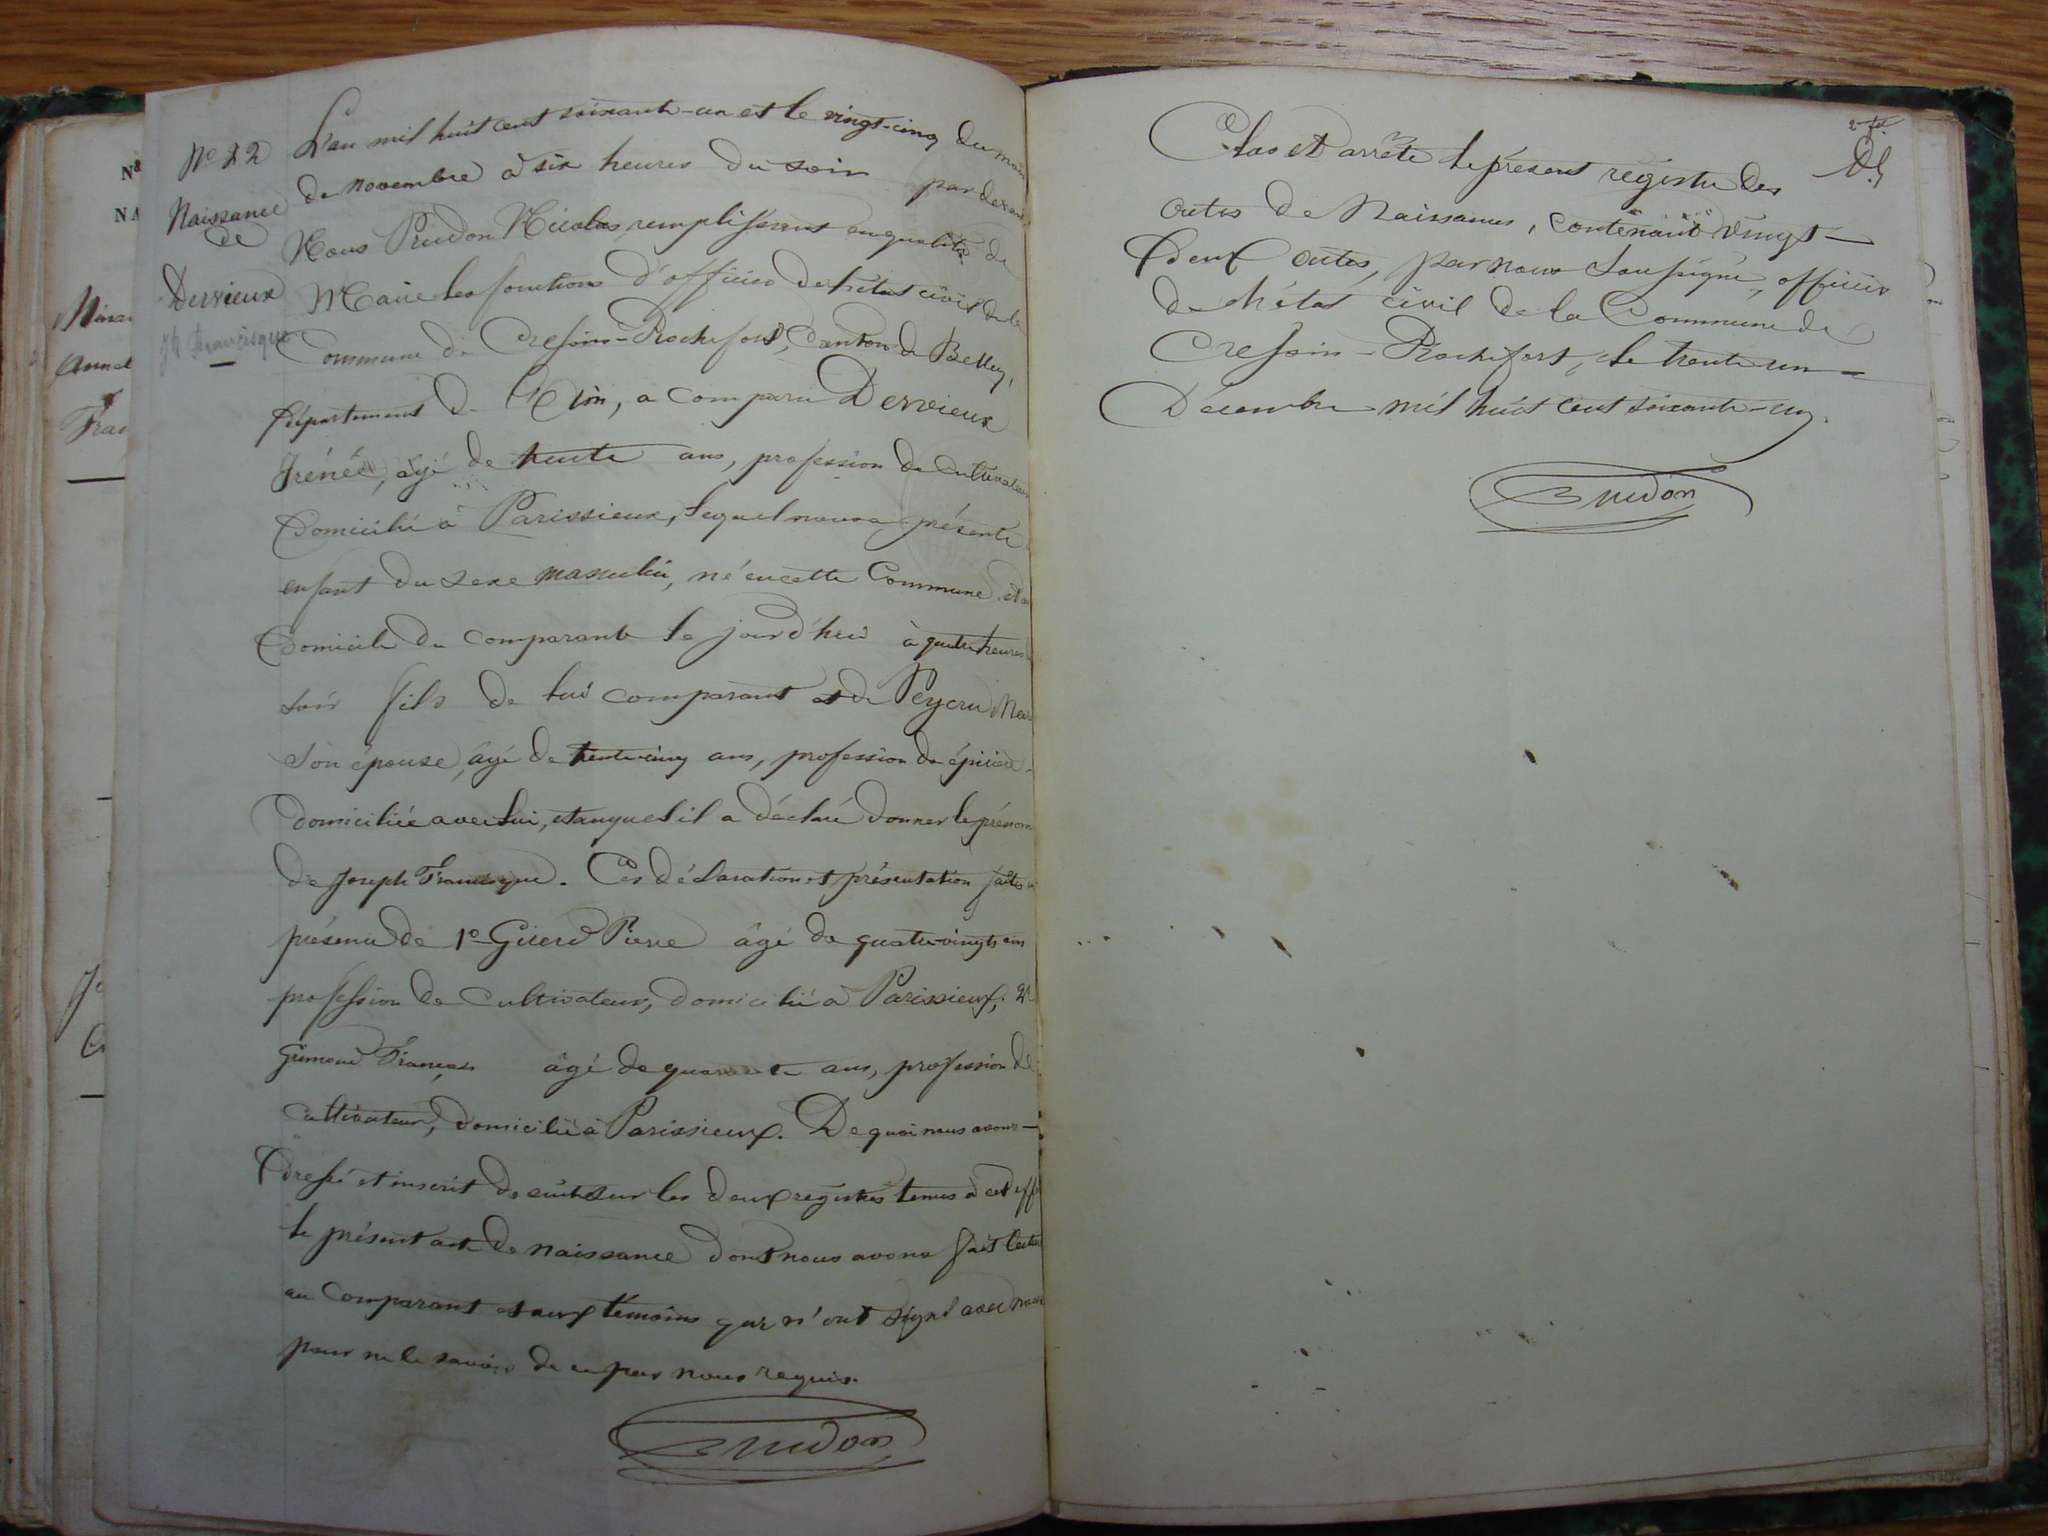 Nº 22
Naissance
de
Dervieux
Jh Francisque
L'an mil huit cent soixante-un et le vingt-cinq du mois
de novembre à six heures du soir par devant
Nous Prudon Nicolas remplissant en qualité de
Maire les fonctions d'officier de l'état civil de la
Commune de Cressin-Rochefort, Canton de Belley,
Département de l'Ain, a comparu Dervieux
Irénée, âgé de trente ans, profession de cultivateur
Domicilié à Parissieux, lequel nous a présenté
enfant du sexe masculin, né en cette Commune et au
Domicile du comparant le jour d'hui à quatre heures
soir fils de lui comparant et de Peycru
son épouse, âgé de trente-cinq ans, profession de épicière
domiciliée avec lui, et auquel il a déclaré donner le prénom
de Joseph Francisque. Ces déclaration et présentation faites
présence de 1º Girerd Pierre âgé de quatre-vingts ans
profession de Cultivateur, domicilié à Parissieux, 2º
Grimond François âgé de quarante ans, profession de
cultivateur, domicilié à Parissieux. De quoi nous avons
Dressé et inscrit de suite sur les deux registres tenus à cet effet
le présent acte de naissance dont nous avons fait lecture
au comparant et aux témoins qui n'ont signé avec nous
pour ne le savoir de ce par nous requis.
Prudon
Clos et arrêté le présent registre des
actes de Naissances, contenant vingt-
Deux actes, par nous soussigné, officier
de l'état civil de la Commune de
Cressin-Rochefort, le trente un
Décembre mil huit cent soixante-un.
Prudon